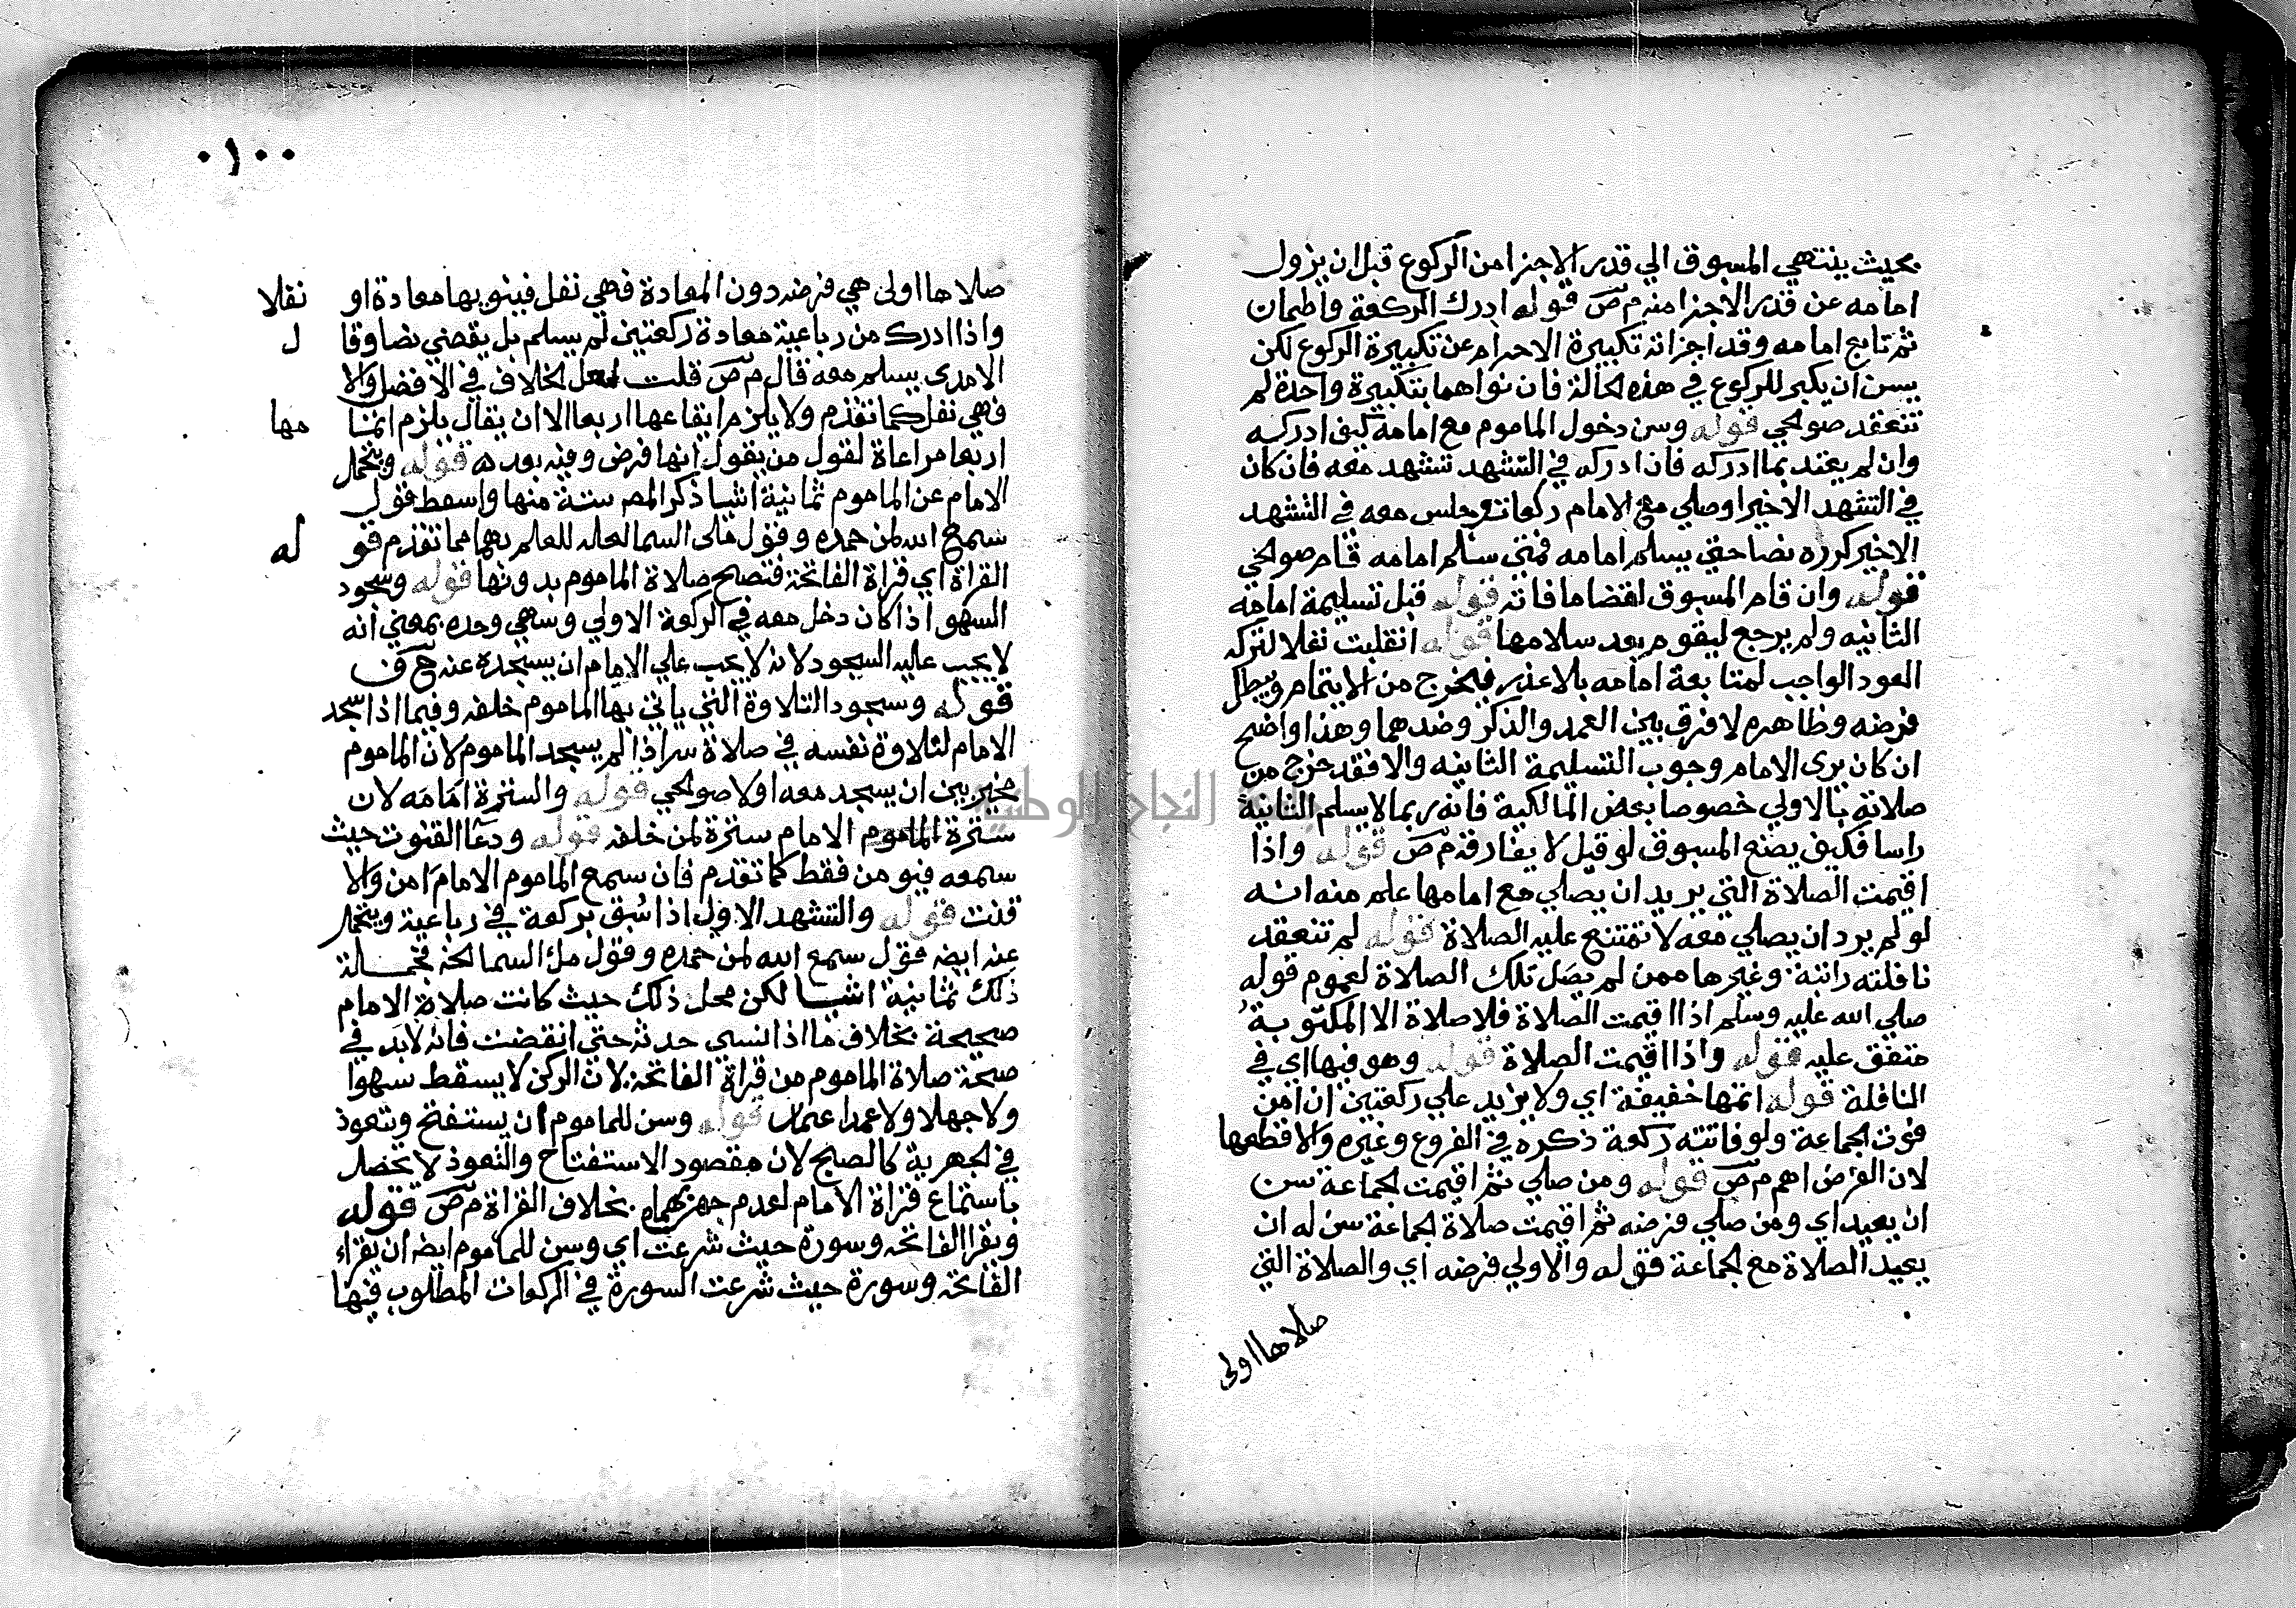 بحيث ينتهي المسبوق الي قدر الاجزا من الركوع قبل ان يزول
امامه عن قدر الاجزا منه م ص قوله ادرك الركعة واطمان
ثم تابع امامه وقد اجزاته تكبيرة الاحرام عن تكبيرة الركوع لكن
يسن ان يكبر للركوع في هذه الحالة فان نواهما بتكبيرة واحدة لم
تنعقد صوالحي قوله وسن دخول الماموم مع امامه كيف ادركه
وان لم يعتد بما ادركه فان ادركه في التشهد تشهد معه فان كان
في التشهد الاخير اوصلي مع الامام ركعات وجلس معه في التشهد
الاخير كرره نصا حتي يسلم امامه فمتي سلم امامه قام صوالحي
قوله وان قام المسبوق لقضا ما فاته قوله قبل تسليمة امامه
الثانيه ولم يرجع ليقوم بعد سلامها قوله انقلبت نفلا لتركه
العود الواجب لمتابعة امامه بلا عذر فيخرج من الايتمام ويبطل
فرضه وظاهره لا فرق بين العمد والذكر وضدهما وهذا واضح
ان كان يري الامام وجوب التسليمة الثانيه والا فقد خرج من
صلاته بالاولي خصوصا بعض المالكية فانه ربما لا يسلم الثانية
راسا فكيف يصنع المسبوق لو قيل لا يفارقه م ص قوله واذا
اقيمت الصلاة التي يريد ان يصلي مع امامها علم منه انه
لو لم يرد ان يصلي معه لا تمتنع عليه الصلاة قوله لم تنعقد
نافلته راتبة وغيرها ممن لم يصل تلك الصلاة لعموم قوله
صلي الله عليه وسلم اذا اقيمت الصلاة فلا صلاة الا المكتوبة
متفق عليه قوله واذا اقيمت الصلاة قوله وهو فيها اي في
النافلة قوله اتمها خفيفة اي ولا يزيد علي ركعتين ان امن
فوت الجماعة ولو فاتته ركعة ذكره في الفروع وغيره والا قطعها
لان الفرض اهم م ص قوله ومن صلي ثم اقيمت الجماعة سن
ان يعيد اي ومن صلي فرضه ثم اقيمت صلاة الجماعة سن له ان
يعيد الصلاة مع الجماعة فقوله والاولي فرضه اي والصلاة التي
صلاها اولى
٠١٠٠
صلاها اولى هي فرضه دون المعادة فهي نفل فينويها معادة او نفلا
واذا ادرك من رباعية معادة ركعتين لم يسلم بل يقضي نصا وقال
الامدي يسلم معه قال م ص قلت لعل الخلاف في الافضل والا
فهي نفل كما تقدم ولا يلزم ايقاعها اربعا الا ان يقال يلزم اتمامها
اربعا مراعاة لقول من يقول انها فرض وفيه بعد ه قوله ويتحمل
الامام عن الماموم ثمانية اشيا ذكر المص ستة منها واسقط قول
سمع الله لمن حمده وقول ملى السما لعله للعلم بهما مما تقدم قوله
القراة اي قراة الفاتحة فتصح صلاة الماموم بدونها قوله وسجود
السهو اذا كان دخل معه في الركعة الاولي وسهي وحده بمعني انه
لا يجب عليه السجود لانه لا يجب علي الامام ان يسجده عنه ح ف
قوله وسجود التلاوة التي ياتي بها الماموم خلفه وفيما اذا سجد
الامام لتلاوة نفسه في صلاة سر اذا لم يسجد الماموم لان الماموم
مخير بين ان يسجد معه اولا صوالحي قوله والسترة امامه لان
سترة الماموم الامام سترة لمن خلفه قوله ودعا القنوت حيث
سمعه فيومن فقط كما تقدم فان سمع الماموم الامام امن والا
قنت قوله والتشهد الاول اذا سبق بركعة في رباعية ويتحمل
عنه ايضه قول سمع الله لمن حمده وقول مل السما لخه فجمالة
ذلك ثمانية اشيا لكن محل ذلك حيث كانت صلاة الامام
صحيحة بخلاف ما اذا نسي حدثه حتي انقضت فانه لابد في
صحة صلاة الماموم من قراة الفاتحة لان الركن لا يسقط سهوا
ولا جهلا ولا عمدا قوله وسن للماموم ان يستفتح ويتعوذ
في الجهرية كالصبح لان مقصود الاستفتاح والتعوذ لا تحصل
باستماع قراة الامام لعدم جهره بهما بخلاف القراة م ص قوله
ويقرا الفاتحه وسورة حيث شرعت اي وسن للماموم ايضه ان يقراء
الفاتحه وسورة حيث شرعت السورة في الركعات المطلوب فيها
جامعة النجاح الوطنية